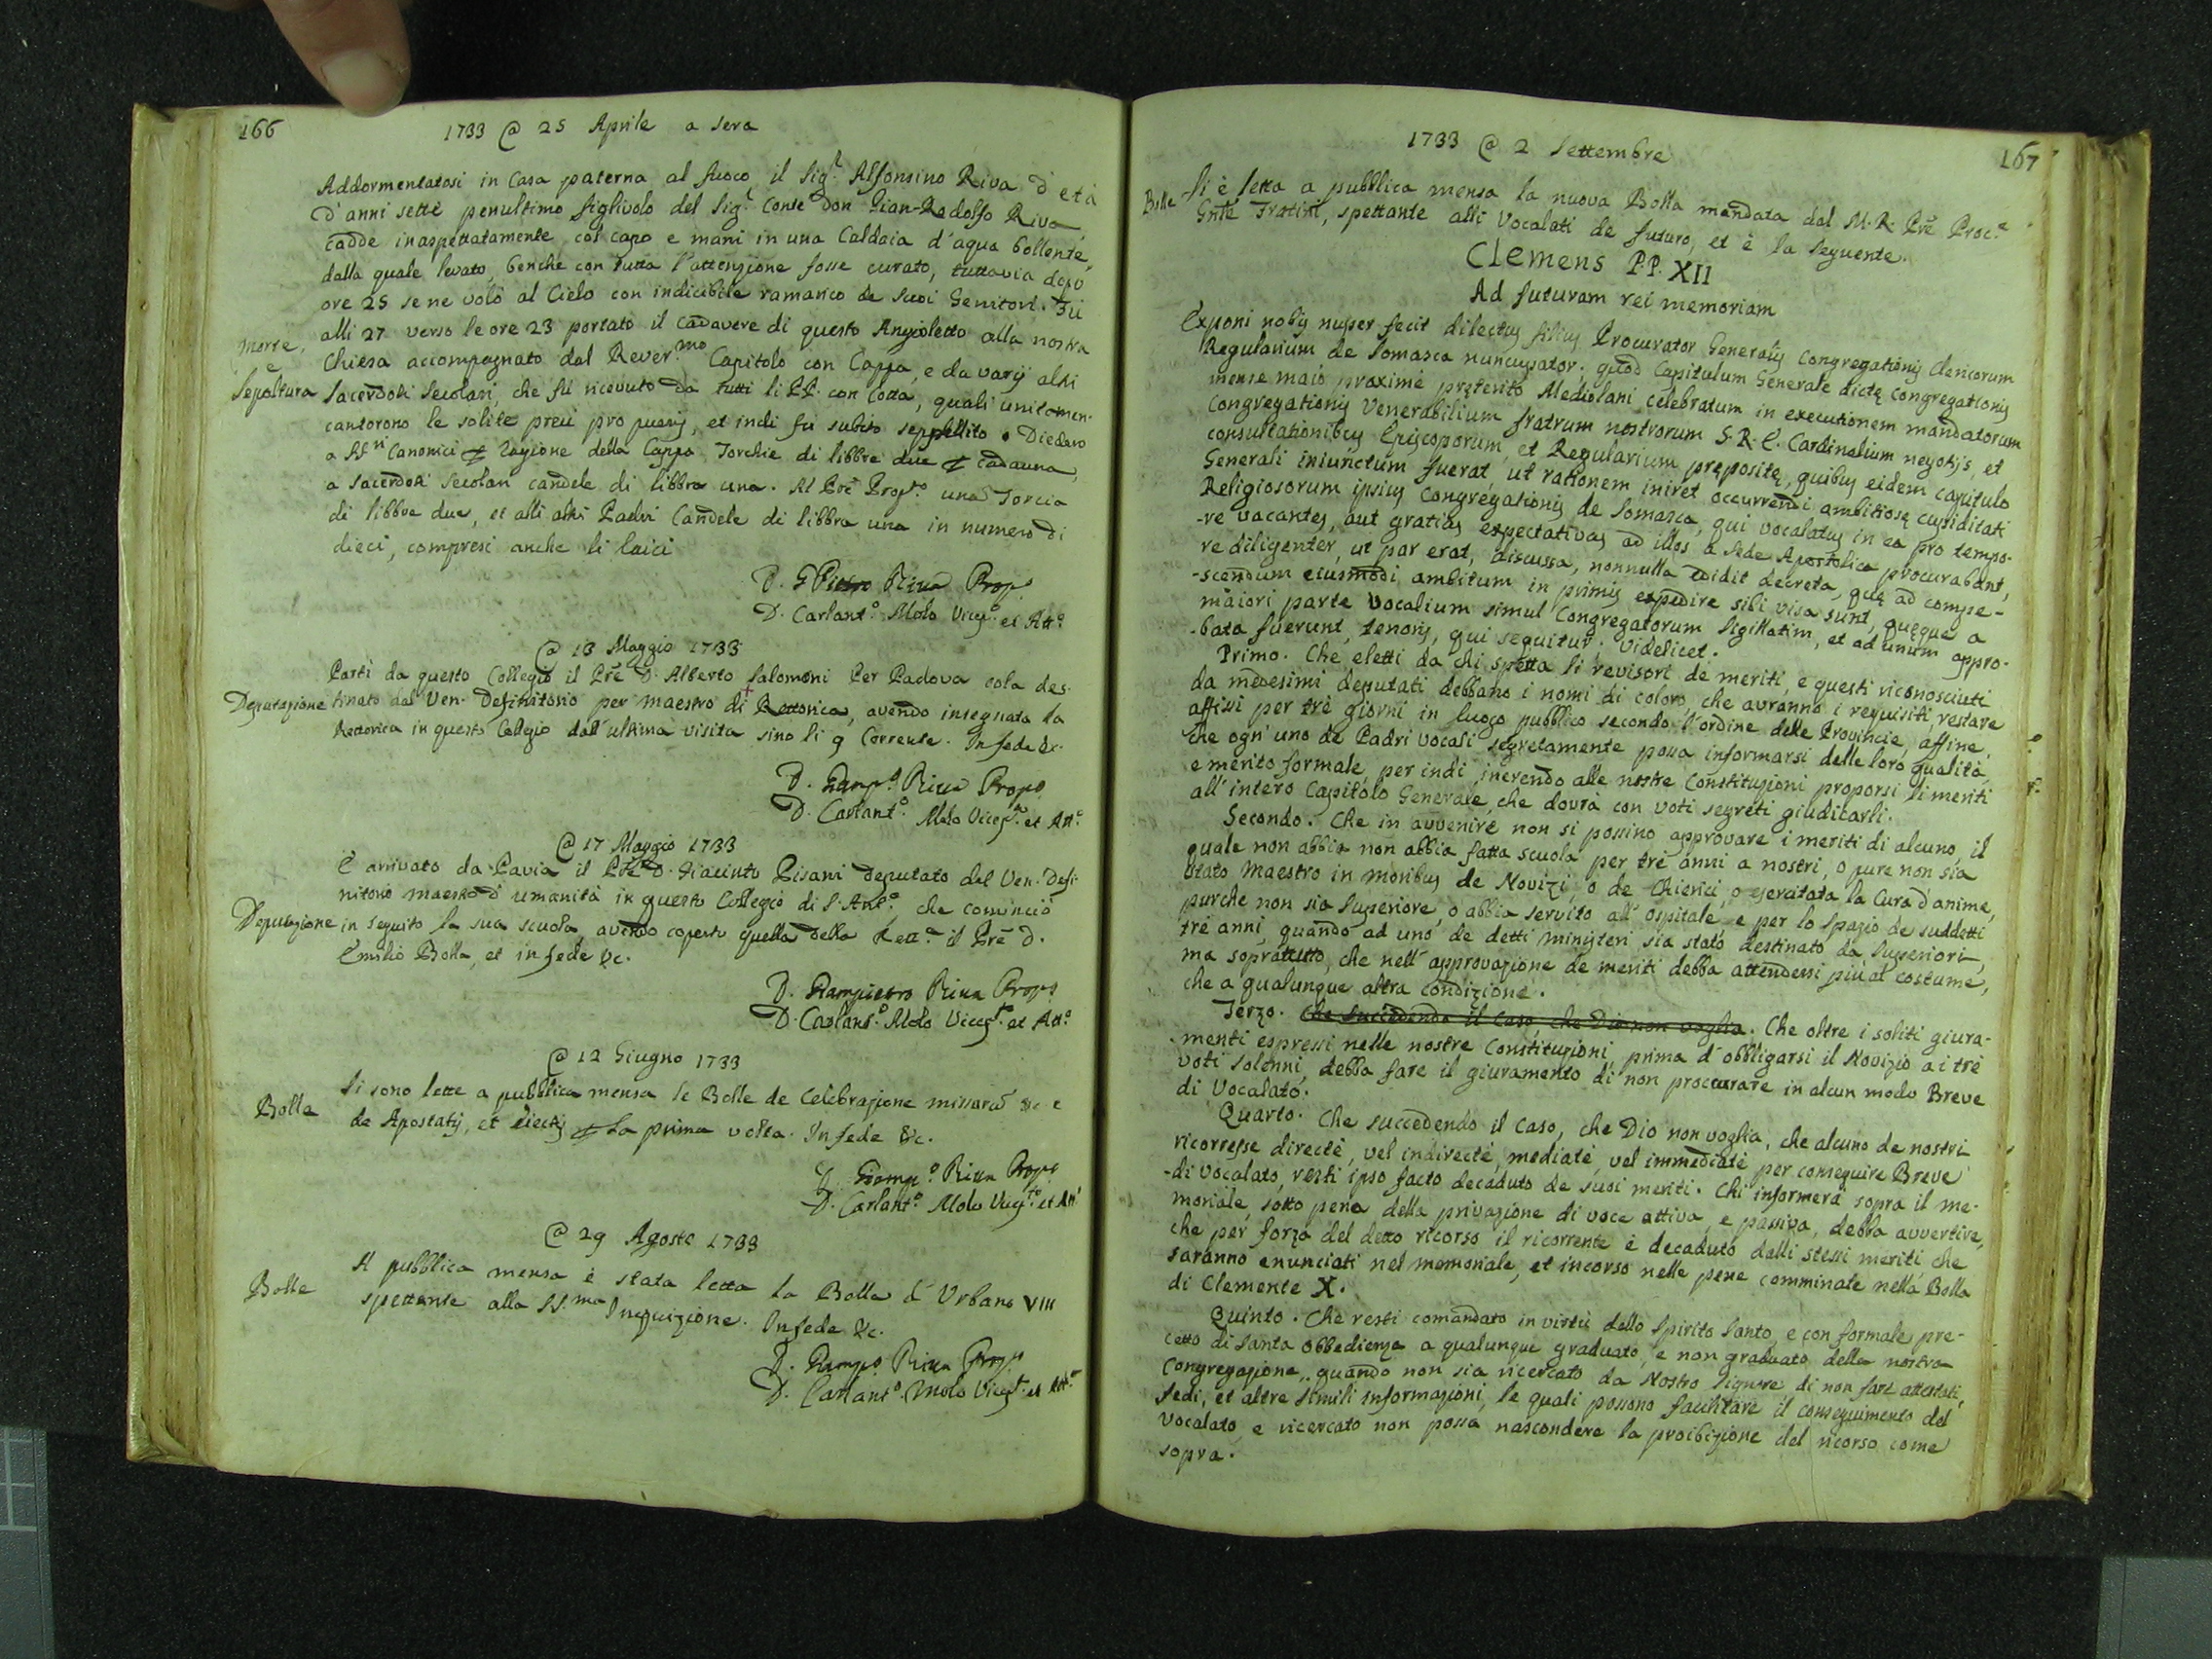 166
1733 @ 25 Aprile a sera
Addormentatosi in Casa paterna al fuoco il Sig.r Alfonsino Riva d'età
d'anni sette penultimo figlivolo del Sig.r Conte don Gian-Rodolfo Riva
cadde inaspettatamente col capo e mani in una Caldaia d'aqua bollente,
dalla quale levato, benche con tutta l'attenzione fosse curato, tuttavia dopo
ore 25 se ne volò al Cielo con indicibile ramarico de suoi Genitori. Fù
alli 27 verso le ore 23 portato il cadavere di questo Angioletto alla nostra
Morte, e Sepoltura
Chiesa accompagnato dal Rever.mo Capitolo con Cappa, e da varij altri
Sacerdoti Secolari, che fù ricevuto da tutti li PP. con Cotta, quali unitamen-
cantorono le solite preci pro pueris, et indi fù subito seppellito. Diedero
a SS.ri Canonici ragione della Cappa Torchie di libbre due cadauna,
a Sacerdoti Secolari candele di libbra una. Al Prē Prop.o una Torcia
di libbre due, et alli altri Padri Candele di libbra una in numero di
dieci, compresi anche li laici
D. GPietro Riva Prop.o
D. Carlant.o Molo Vicep.o et Att.o
@ 13 Maggio 1733
Partì da questo Collegio il Prē D. Alberto Salomoni Per Padova cola des-
Deputazione
tinato dal Ven. Definitorio per maestro di Rettorica, avendo insegnata la
Rettorica in questo Collegio dall'ultima visita sino li 9 Corrente. In fede &c.
D. Giamp.o Riva Prop.o
D. Carlant.o Molo Vicep.to et Att.o
@ 17 Maggio 1733
È arrivato da Pavia il Prē D. Giacinto Pisani deputato dal Ven. Defi-
nitorio maestro d'umanità in questo Collegio di S. Ant.o, che cominciò
Deputazione
in seguito la sua scuola avendo coperto quella della Rett.a il Prē D.
Emilio Bolla, et in fede &c.
D. Giampietro Riva Prop.o
D. Carlant.o Molo Vicep.to et Att.o
@ 12 Giugno 1733
Bolle
Si sono lette a pubblica mensa le Bolle de Celebrazione missarū &c e
de Apostatis, et Eiectis la prima volta. In fede &c.
D. Giamp.o Riva Prop.o
D. Carlant.o Molo Vicep.to et Att.
@ 29 Agosto 1733
Bolla
A pubblica mensa è stata letta la Bolla d'Urbano VIII
spettante alla SS.ma Inquizione. In fede &c.
D. Giamp.o Riva Prop.o
D. Carlant.o Molo Vicep.t et Att.o
167
1733 @ 2 Settembre
Bolla
Si è letta a pubblica mensa la nuova Bolla mandata dal M.R. Prē Proc.e
Gnte, spettante alli Vocalati de futuro, et è la seguente.
Clemens P.P. XII
Ad futuram rei memoriam
Exponi nobis nuper fecit dilectus filius Procurator Generalis Congregationis Clericorum
Regularium de Somasca nuncupator; quod Capitulum Generale dictę congregationis
mense maio proximè pręterito Mediolani celebratum in executionem mandatorum
Congregationis Venerabilium fratrum nostrorum S.R.E. Cardinalium negotijs, et
consultationibus Episcoporum, et Regularium prępositę, quibus eidem capitulo
Generali iniunctum fuerat, ut rationem iniret occurrendi ambitiosę cupiditati
Religiosorum ipsius Congregationis de Somasca, qui vocalatus in ea pro tempo-
-re vacantes, aut gratias expectativas ad illos a Sede Apostolica procurabant,
re diligenter, ut par erat, discussa, nonnulla edidit decreta, quę ad compe-
-scendum eiusmodi ambitum in primis expedire sibi visa sunt, quęque a
maiori parte vocalium simul Congregatorum sigillatim, et ad unum appro-
-bata fuerunt, tenoris, qui sequitur. Videlicet.
Primo. Che eletti da chi spetta li revisori de meriti, e questi riconosciuti
da medesimi deputati debbano i nomi di coloro, che avranno i requisiti, restare
affissi per trè giorni in luogo pubblico secondo l'ordine delle Provincie, affine,
che ogn'uno de Padri vocali segretamente possa informarsi delle loro qualità,
e merito formale, per indi, inerendo alle nostre Constituzioni proporsi li meriti
all'intero Capitolo Generale, che dovrà con voti segreti giudicarli.
Secondo. Che in avvenire non si possino approvare i meriti di alcuno, il
quale non abbia non abbia fatta scuola per tre anni a nostri, o pure non sia
stato Maestro in moribus de Novizi, o de Chierici, o esercitata la Cura d'anime,
purche non sia Superiore, o abbia servito all'ospitale, e per lo spazio de suddetti
trè anni, quando ad uno de detti ministeri sia stato destinato da Superiori,
ma soprattutto, che nell'approvazione de meriti debba attendersi più al costume,
che a qualunque altra condizione.
Terzo. Che succedendo il caso, che Dio non voglia. Che oltre i soliti giura-
menti espressi nelle nostre Constituzioni, prima d'obbligarsi il Novizio a i trè
voti solenni, debba fare il giuramento di non proccurare in alcun modo Breve
di Vocalato.
Quarto. Che succedendo il caso, che Dio non voglia, che alcuno de nostri
ricorresse directè, vel indirectè, mediatè, vel immediatè per conseguire Breve
-di Vocalato, resti ipso facto decaduto de suoi meriti. Chi informerà sopra il me-
moriale, sotto pena della privazione di voce attiva, e passiva, debba avvertire,
che per forza del detto ricorso il ricorrente è decaduto dalli stessi meriti che
saranno enunciati nel memoriale, et incorso nelle pene comminate nella Bolla
di Clemente X.
Quinto. Che resti comandato in virtù dello Spirito Santo, e con formale pre-
cetto di santa obbedienza a qualunque graduato, e non graduato della nostra
Congregazione, quando non sia ricercato da Nostro Signore, di non fare attestati,
fedi, et altre simili informazioni, le quali possono facilitare il conseguimento del
Vocalato, e ricercato non possa nascondere la proibizione del ricorso come
sopra.